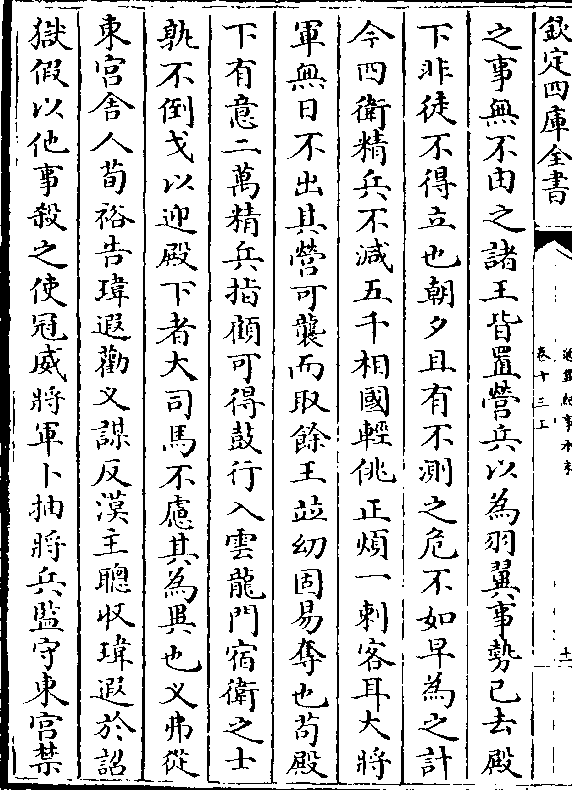 欽定四庫全書
通鑑紀事本末
卷十三上
十二
之事無不由之諸王皆置營兵以為羽翼事勢已去殿
下非徒不得立也朝夕且有不測之危不如早為之計
今四衛精兵不減五千相國輕佻正煩一刺客耳大將
軍無日不出其營可襲而取餘王並幼固易奪也茍殿
下有意二萬精兵指顧可得鼓行入雲龍門宿衛之士
孰不倒戈以迎殿下者大司馬不慮其為異也乂弗從
東宮舍人荀裕告瑋遐勸乂謀反漢主聰收瑋遐於詔
獄假以他事殺之使冠威將軍卜抽將兵監守東宮禁